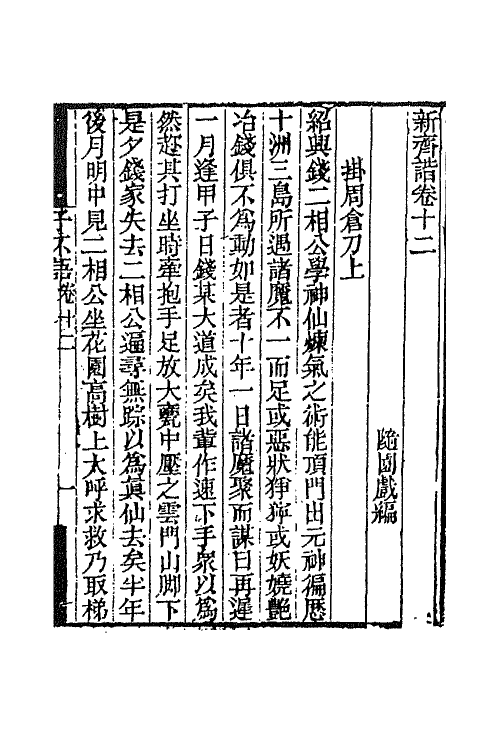 新齊諧卷十二
隨園戲編
掛周倉刀上
紹興錢二相公學神仙煉氣之術能頂門出元神徧歷
十洲三島所遇諸魔不一而足或惡狀猙獰或妖嬈艷
冶錢俱不為動如是者十年一日諸魔聚而謀曰再遲
一月逢甲子日錢某大道成矣我輩作速下手衆以為
然趁其打坐時牽抱手足放大甕中壓之雲門山脚下
是夕錢家失去二相公遍尋無踪以為眞仙去矣半年
後月明中見二相公坐花園高樹上大呼求救乃取梯
子不語卷十二 一